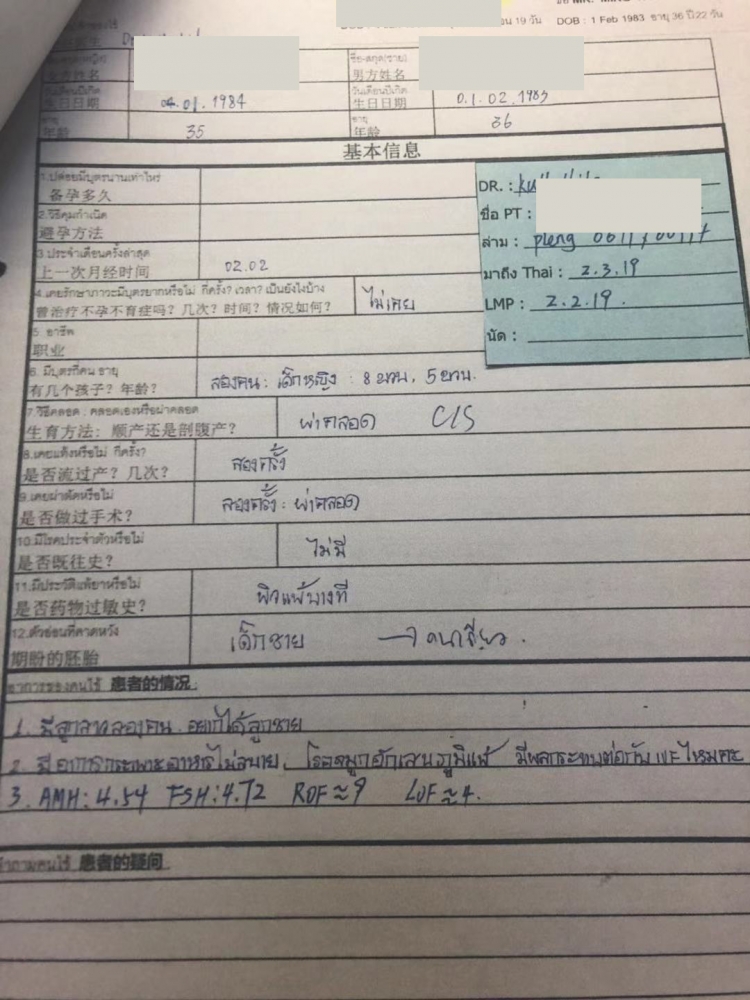 DOB : 1 Feb 1983 อายุ 36 ปี 22 วัน
น 19 วัน
ชื่อ-สกุล(ชาย)
女方姓名
男方姓名
วันเดือนปีเกิด
วันเดือนปีเกิด
生日日期 04.01.1984
生日日期 01.02.1983
อายุ
อายุ
年龄 35
年龄 36
基本信息
1.ปล่อยมีบุตรนานเท่าไหร่
备孕多久
2.วิธีคุมกำเนิด
避孕方法
3.ประจำเดือนครั้งล่าสุด
上一次月经时间 02.02
4.เคยรักษาภาวะมีบุตรยากหรือไม่ กี่ครั้ง? เวลา? เป็นยังไงบ้าง
曾治疗不孕不育症吗？几次？时间？情况如何？ ไม่เคย
DR. :
ชื่อ PT :
ล่าม : pleng
มาถึง Thai : 2.3.19
LMP : 2.2.19.
นัด :
5 อาชีพ
职业
6. มีบุตรกี่คน อายุ
有几个孩子？年龄？ สองคน : เด็กหญิง : 8 ขวบ, 5 ขวบ.
7.วิธีคลอด : คลอดเองหรือผ่าคลอด
生育方法：顺产还是剖腹产？ ผ่าคลอด C/S
8.เคยแท้งหรือไม่ กี่ครั้ง?
是否流过产？几次？ สองครั้ง
9.เคยผ่าตัดหรือไม่
是否做过手术？ สองครั้ง : ผ่าคลอด
10.มีโรคประจำตัวหรือไม่
是否既往史？ ไม่มี
11.มีประวัติแพ้ยาหรือไม่
是否药物过敏史？ ผิวแพ้บางที
12.ตัวอ่อนที่คาดหวัง
期盼的胚胎 เด็กชาย → คนเดียว.
อาการของคนไข้ 患者的情况:
1. มีลูกสาวสองคน อยากได้ลูกชาย
2. มีอาการกระเพาะอาหารไม่สบาย, โรคจมูกอักเสบภูมิแพ้ มีผลกระทบต่อกับ IVF ไหมคะ
3. AMH: 4.54 FSH: 4.72 ROF ≈ 9 LOF ≈ 4.
คำถามคนไข้ 患者的疑问